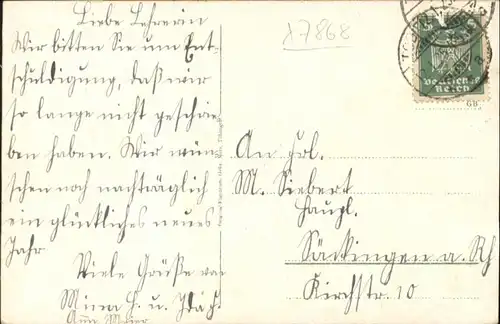 Liebe Lehrerin
Wir bitten Sie um Ent-
schuldigung, daß wir
so lange nicht geschrie-
ben haben. Wir wün-
schen noch nachträglich
ein glückliches neues
Jahr
Viele Grüße von
Mina H. u. Ida H.
Anna Meier
x7868
Deutsches
Reich
68
An Frl.
M. Siebert
Hauptl.
Säckingen a. Rh
Kirchstr. 10